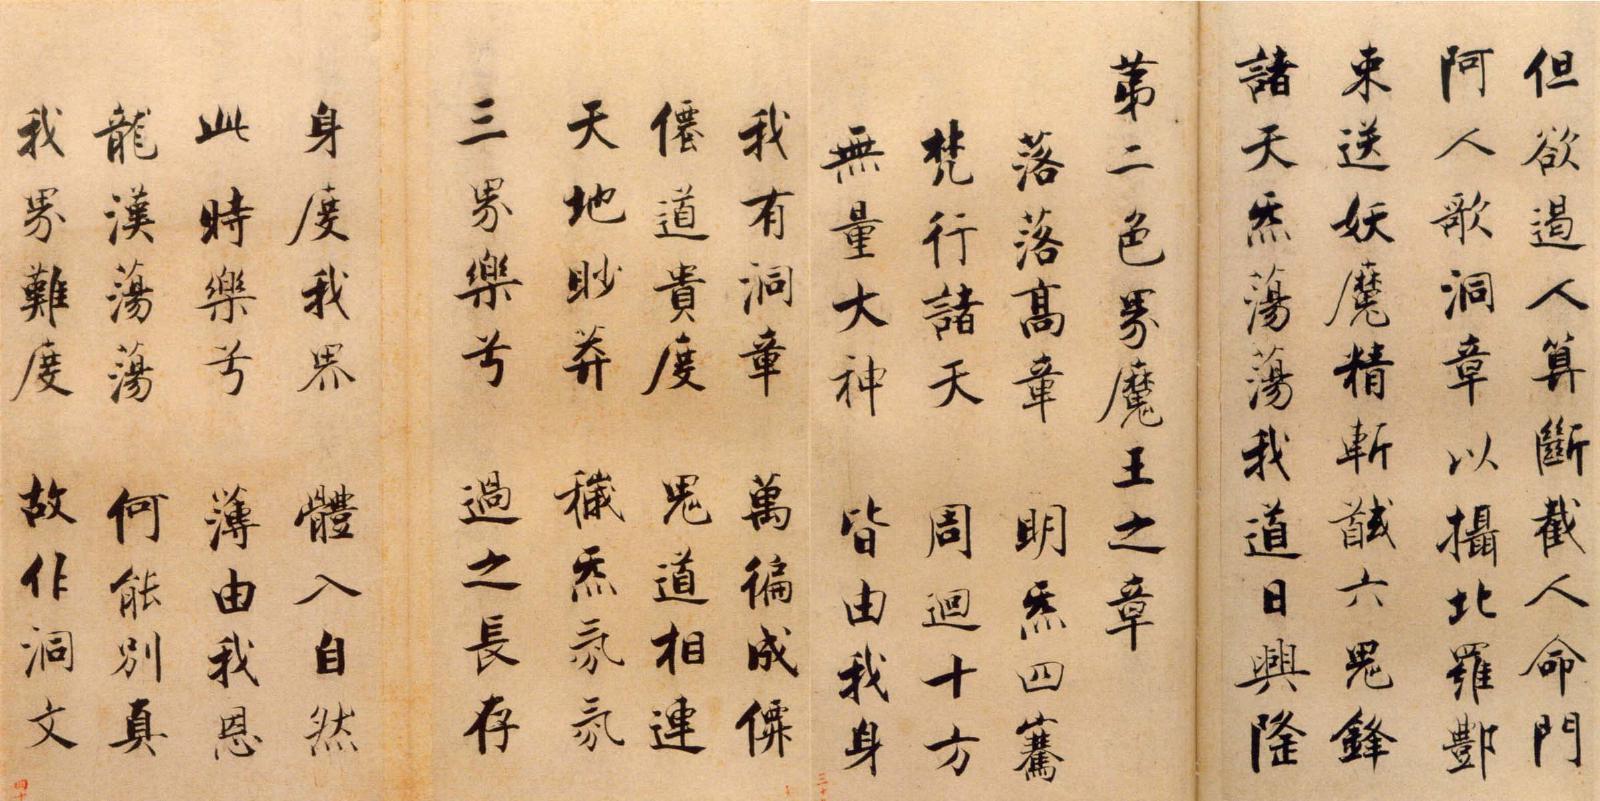 但欲遏人算斷截人命門
阿人歌洞章以攝北羅酆
束送妖魔精斬馘六鬼鋒
諸天炁蕩蕩我道日興隆
第二色界魔王之章
落落高章 明炁四騫
梵行諸天 周迴十方
無量大神 皆由我身
我有洞章 萬徧成僊
僊道貴度 鬼道相連
天地眇莽 穢炁氛氛
三界樂兮 過之長存
身度我界 體入自然
此時樂兮 薄由我恩
龍漢蕩蕩 何能別真
我界難度 故作洞文